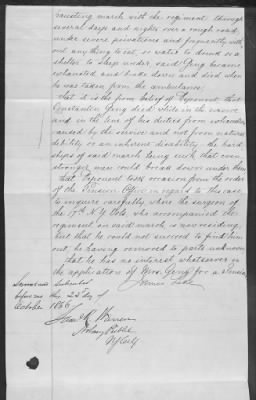 exhausting march with the regiment through
several days and nights over a rough road,
under severe privations and frequently with-
out any thing to eat, or water to drink or a
shelter to sleep under said Geng became
exhausted and broke down and died when
he was taken from the ambulance;
that it is the firm belief of Deponent that
Constantin Geng died while in the service and
in the line of his duties from exhaustion
caused by the service and not from natural
debility or an inherent disability the hard-
ships of said march being such that even
stronger men would break down under them
that Deponent took occasion from the order
of the Pension Office in regard to this case,
to inquire carefully where the surgeon of
the 7th N.Y. Vols. who accompanied the
regiment on said march is now residing
but that he could not succeed to find him
out, he having removed to parts unknown
that he has no interest whatsoever in
the application of Mrs. Geng for a Pension
Sworn and subscribed
before me this 23d day of
October 1866
Notary Public
N.Y. City